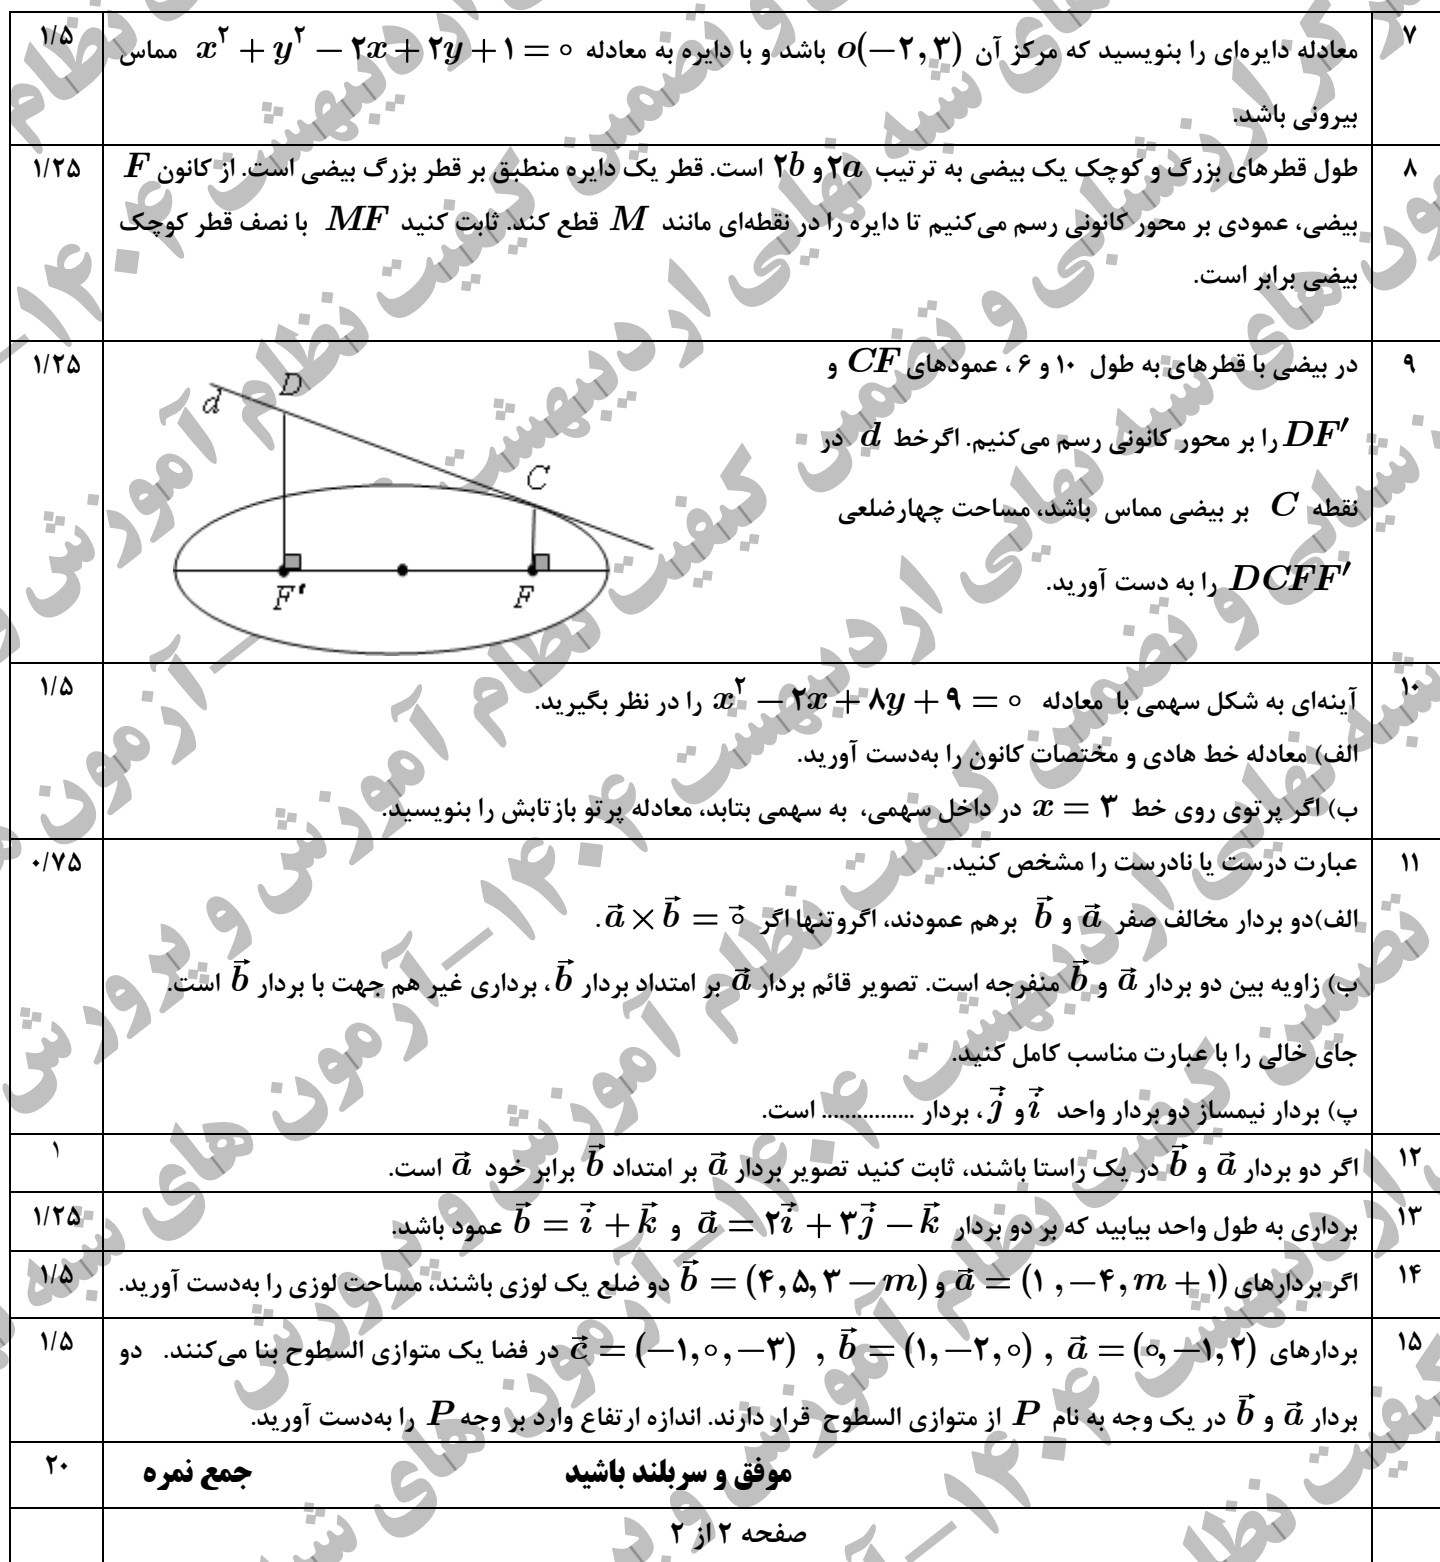 ۷ معادله دایره‌ای را بنویسید که مرکز آن o(−۲,۳) باشد و با دایره به معادله x² + y² − ۲x + ۲y + ۱ = ۰ مماس ۱/۵
بیرونی باشد.
۸ طول قطرهای بزرگ و کوچک یک بیضی به ترتیب ۲a و ۲b است. قطر یک دایره منطبق بر قطر بزرگ بیضی است. از کانون F ۱/۲۵
بیضی، عمودی بر محور کانونی رسم می‌کنیم تا دایره را در نقطه‌ای مانند M قطع کند. ثابت کنید MF با نصف قطر کوچک
بیضی برابر است.
۹ در بیضی با قطرهای به طول ۱۰ و ۶ ، عمودهای CF و ۱/۲۵
DF′ را بر محور کانونی رسم می‌کنیم. اگرخط d در
نقطه C بر بیضی مماس باشد، مساحت چهارضلعی
DCFF′ را به دست آورید.
d
D
C
F'
F
۱۰ آینه‌ای به شکل سهمی با معادله x² − ۲x + ۸y + ۹ = ۰ را در نظر بگیرید. ۱/۵
الف) معادله خط هادی و مختصات کانون را به‌دست آورید.
ب) اگر پرتوی روی خط x = ۳ در داخل سهمی، به سهمی بتابد، معادله پرتو بازتابش را بنویسید.
۱۱ عبارت درست یا نادرست را مشخص کنید. ۰/۷۵
الف)دو بردار مخالف صفر a⃗ و b⃗ برهم عمودند، اگروتنها اگر a⃗ × b⃗ = ۰⃗ .
ب) زاویه بین دو بردار a⃗ و b⃗ منفرجه است. تصویر قائم بردار a⃗ بر امتداد بردار b⃗ ، برداری غیر هم جهت با بردار b⃗ است.
جای خالی را با عبارت مناسب کامل کنید.
پ) بردار نیمساز دو بردار واحد i⃗ و j⃗ ، بردار ................ است.
۱۲ اگر دو بردار a⃗ و b⃗ در یک راستا باشند، ثابت کنید تصویر بردار a⃗ بر امتداد b⃗ برابر خود a⃗ است. ۱
۱۳ برداری به طول واحد بیابید که بر دو بردار a⃗ = ۲i⃗ + ۳j⃗ − k⃗ و b⃗ = i⃗ + k⃗ عمود باشد. ۱/۲۵
۱۴ اگر بردارهای a⃗ = (۱ , −۴, m + ۱) و b⃗ = (۴, ۵, ۳ − m) دو ضلع یک لوزی باشند، مساحت لوزی را به‌دست آورید. ۱/۵
۱۵ بردارهای a⃗ = (۰, −۱, ۲) , b⃗ = (۱, −۲, ۰) , c⃗ = (−۱, ۰, −۳) در فضا یک متوازی السطوح بنا می‌کنند. دو ۱/۵
بردار a⃗ و b⃗ در یک وجه به نام P از متوازی السطوح قرار دارند. اندازه ارتفاع وارد بر وجه P را به‌دست آورید.
موفق و سربلند باشید جمع نمره ۲۰
صفحه ۲ از ۲